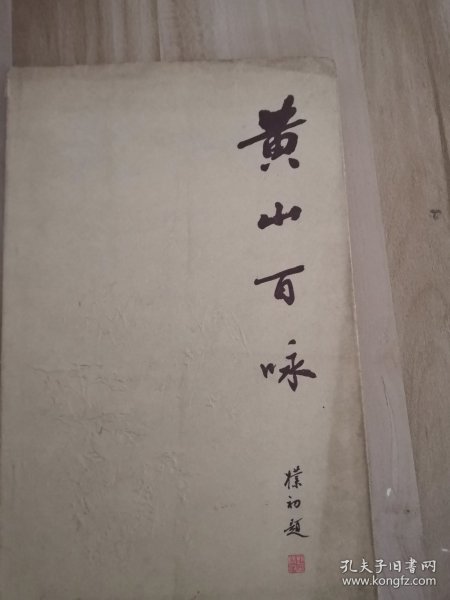 黄山百咏
樸初题
孔夫子旧书网
www.kongfz.com